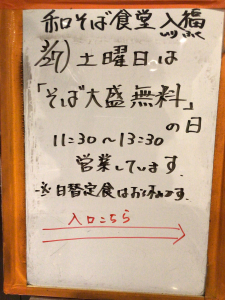 和そば食堂 入福
3/7) 土曜日は
「そば大盛無料」
の日
11:30〜13:30
営業しています.
※日替定食はお休みです.
入口こちら